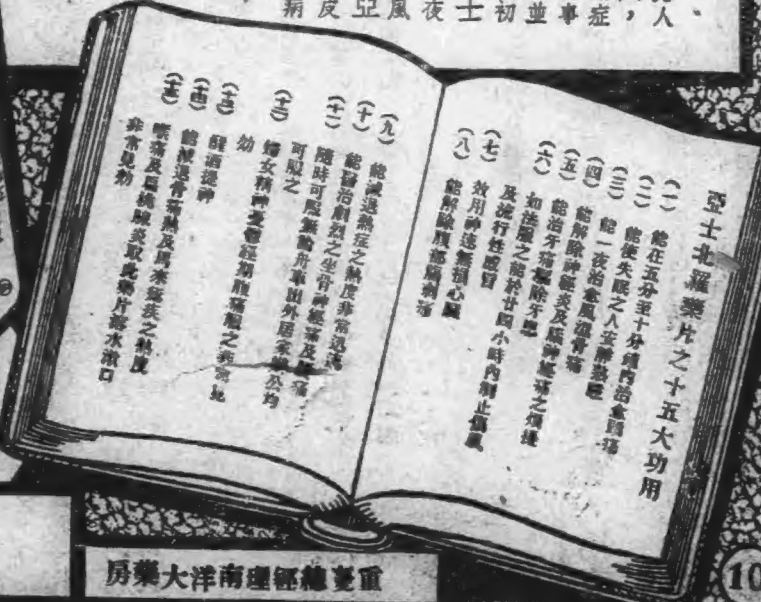 人
症，
事
並
初
士
夜
風
亞
皮
病
亞士北羅藥片之十五大功用
(一) 能在五分至十分鐘內治愈頭痛
(二) 能使失眠之人安靜熟睡
(三) 能一夜治愈風濕骨痛
(四) 能解除神經炎及腦神經痛之煩擾
(五) 能治牙痛解除牙患
(六) 如法服之能於廿四小時內制止傷風
及流行性感冒
(七) 效用神速無損心臟
(八) 能解除腹部劇痛
(九) 能減退熱症之熱度非常迅速
(十) 能醫治劇烈之坐骨神經痛及腰痛
(十一) 隨時可服無論舟車出外居家辦公均
可服之
(十二) 婦女精神憂鬱經期腹痛服之
効
(十三) 醒酒提神
(十四) 能減退骨痛熱及馬來瘧疾之熱度
(十五) 喉痛及扁桃腺炎取此藥片落水漱口
非常見効
房藥大洋南理經總慶重
10